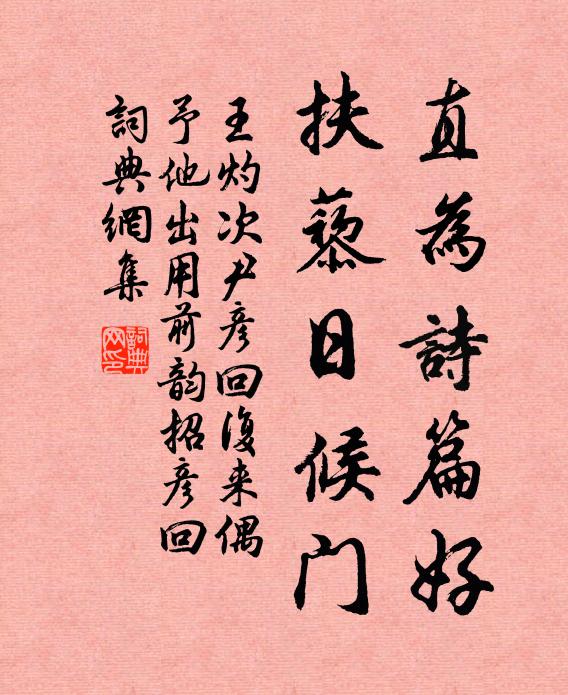 直為詩篇好
扶藜日候門
王灼次尹彦回復来偶
予他出用前韵招彦回
詞典網集
詞典网印